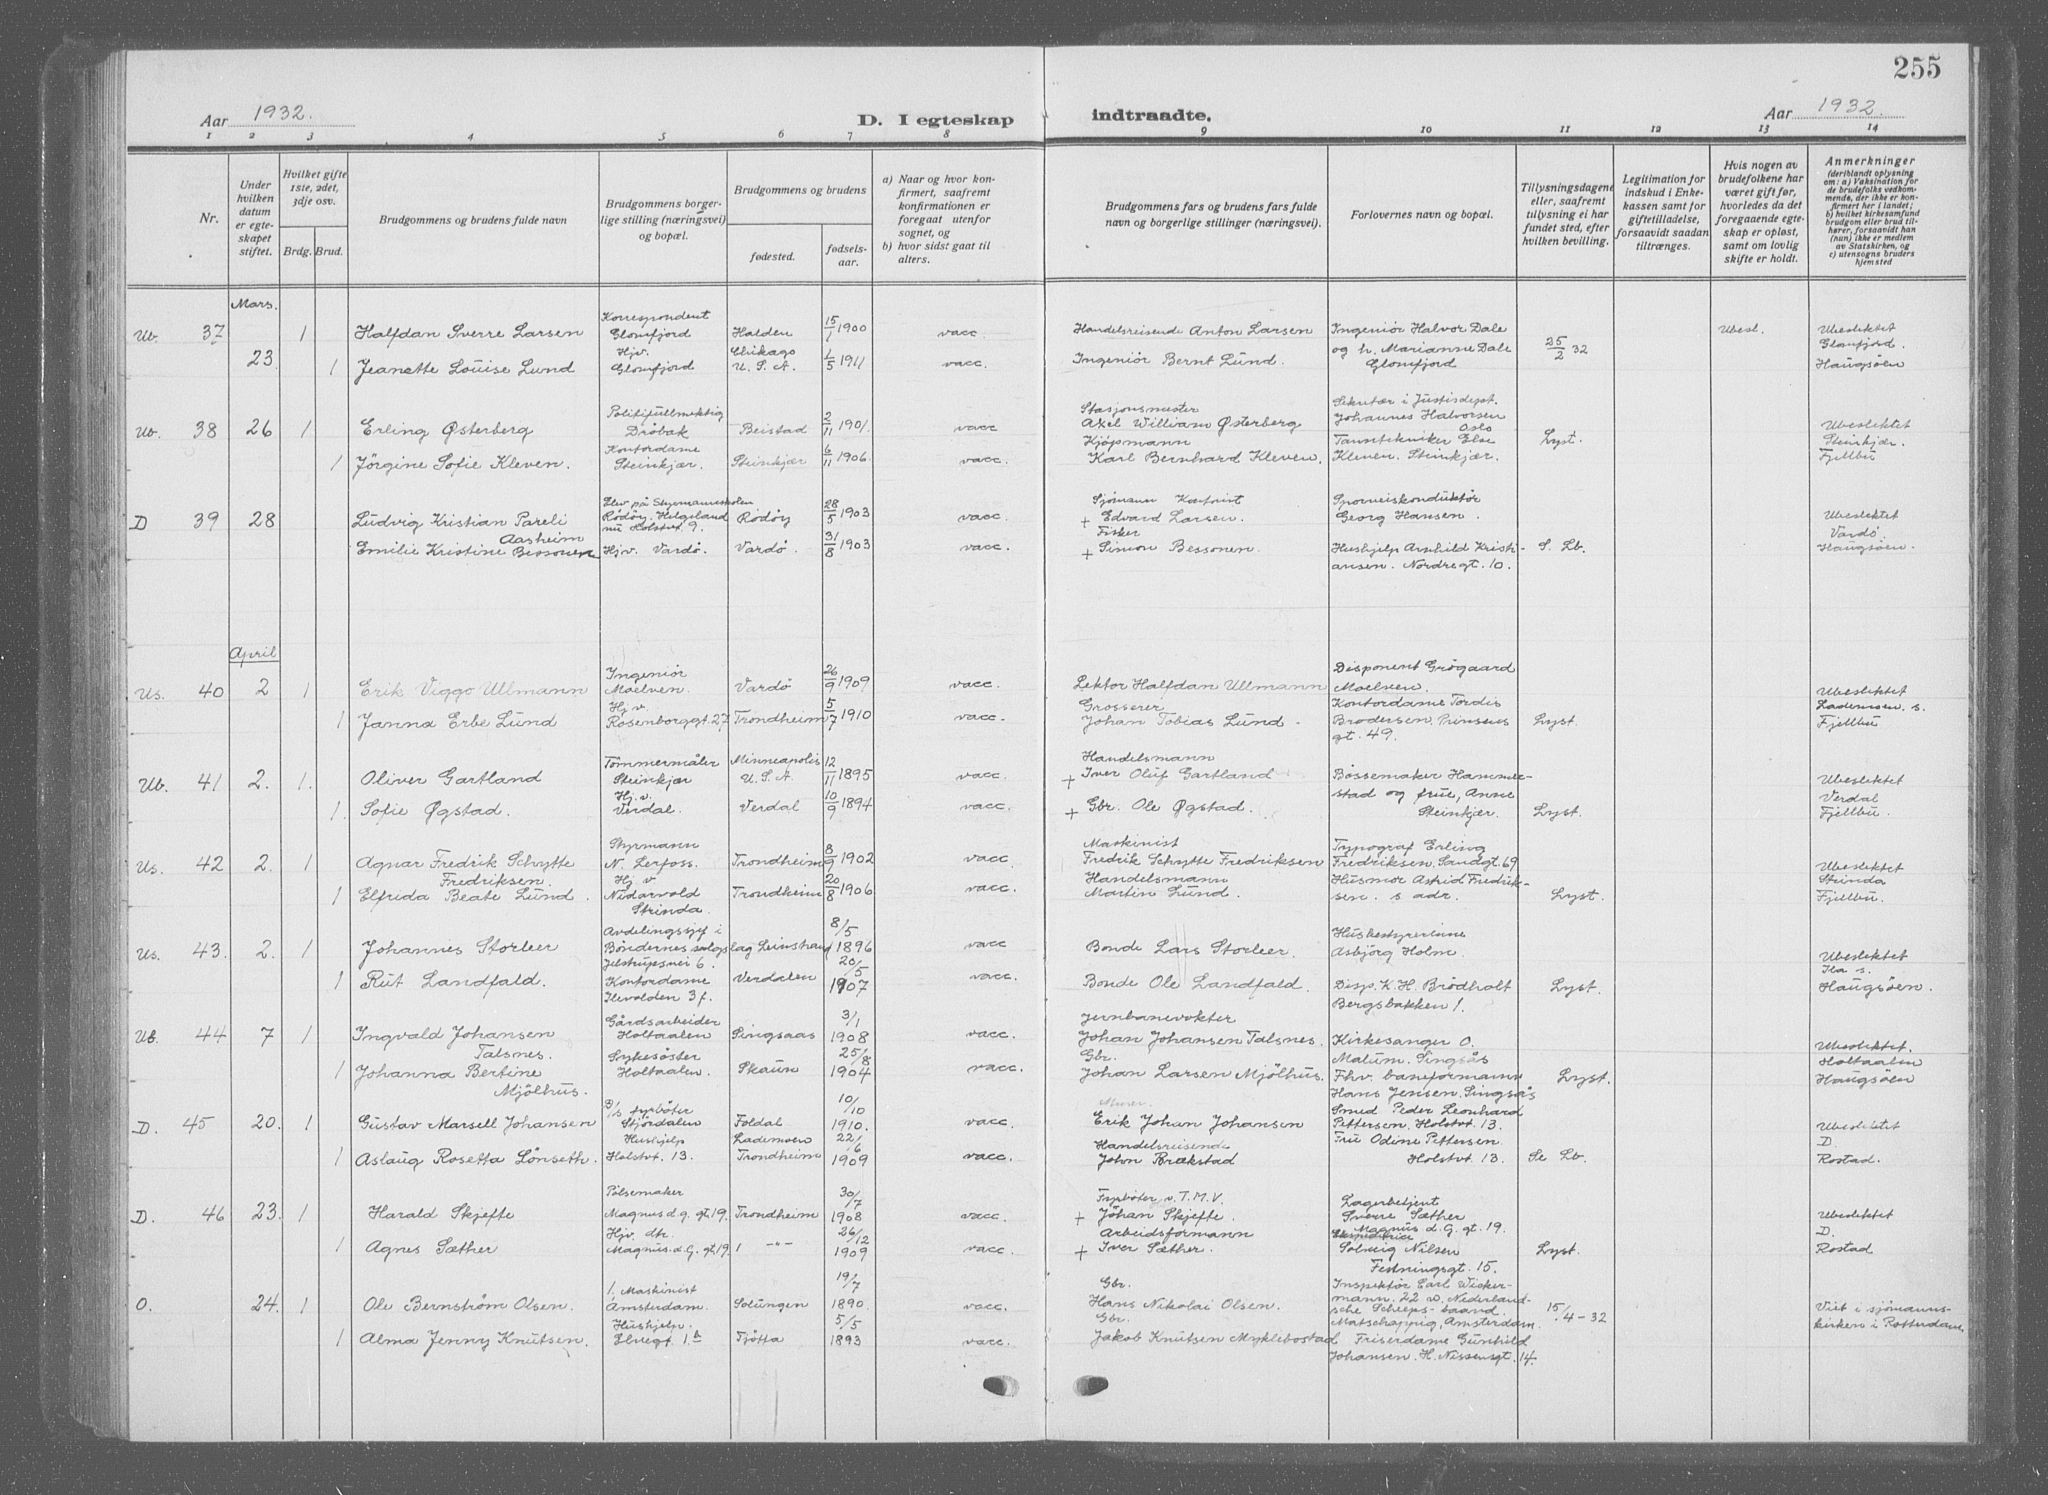 255
Aar 1932.
D. I egteskap indtraadte.
Aar 1932.
1 2 3 4 5 6 7 8 9 10 11 12 13 14
Nr.
Under hvilken datum er egteskapet stiftet.
Hvilket gifte 1ste, 2det, 3dje osv.
Brdg. Brud.
Brudgommens og brudens fulde navn
Brudgommens borgerlige stilling (næringsvei) og bopæl.
Brudgommens og brudens
fødested.
fødselsaar.
a) Naar og hvor konfirmert, saafremt konfirmationen er foregaat utenfor sognet, og
b) hvor sidst gaat til alters.
Brudgommens fars og brudens fars fulde navn og borgerlige stillinger (næringsvei).
Forlovernes navn og bopæl.
Tillysningsdagene eller, saafremt tillysning ei har fundet sted, efter hvilken bevilling.
Legitimation for indskud i Enkekassen samt for giftetilladelse, forsaavidt saadan tiltrænges.
Hvis nogen av brudefolkene har været gift før, hvorledes da det foregaaende egteskap er opløst, samt om lovlig skifte er holdt.
Anmerkninger
(deriblandt oplysning om: a) Vaksination for de brudefolks vedkommende, der ikke er konfirmert her i landet;
b) hvilket kirkesamfund brudgom eller brud tilhører, forsaavidt han (hun) ikke er medlem av Statskirken, og
c) utensogns bruders hjemsted
Mars.
Ub. 37 1 Halfdan Sverre Larsen Korrespondent Glomfjord Halden 15/1 1900 vacc. Handelsreisende Anton Larsen Ingeniör Halvor Dale Ubesl. Ubeslektet
23 1 Jeanette Louise Lund Hjv. Glomfjord Chikago U. S. A. 1/5 1911 vacc. Ingeniör Bernt Lund. og h. Marianne Dale Glomfjord 25/2 32 Glomfjord. Haugsöen
Ub. 38 26 1 Erling Østerberg Politifullmektig Dröbak Beistad 2/11 1901. vacc Stasjonsmester Axel William Østerberg Sekretær i Justisdept. Johannes Halvorsen Oslo Ubeslektet
1 Jörgine Sofie Kleven. Kontordame Steinkjær. Steinkjær 6/11 1906. vacc. Kjöpmann Karl Bernhard Kleven. Tanntekniker Else Kleven. Steinkjær. Lyst. Steinkjær. Fjellbu
D 39 28 Ludvig Kristian Pareli Aasheim Elev på Styrmannsskolen Rödöy. Helgeland nu Holstvt. 9. Rödöy 28/5 1903 vacc. Sjömann + Edvard Larsen. Sporveiskonduktör Georg Hansen. Ubeslektet
Emilie Kristine Bessonen Hjv. Vardö. Vardö. 31/8 1903 vacc. Fisker + Simon Bessonen. Hushjelp Arnhild Kristiansen. Nordregt. 10. S. Lb. Vardö. Haugsöen.
April
Us. 40 2 1 Erik Viggo Ullmann Ingeniör Moelven. Vardö 26/9 1909 vacc. Lektor Halfdan Ullmann Disponent Grögaard Moelven. Ubeslektet
1 Janna Erbe Lund Hjv. Rosenborggt. 27 Trondheim 5/7 1910 vacc. Grosserer Johan Tobias Lund. Kontordame Tordis Brodersen. Prinsensgt. 49. Lyst. Lademoen s. Fjellbu
Ub. 41 2. 1. Oliver Gartland Tömmermåler Steinkjær Minneapolis U. S. A. 12/11 1895 vacc. Handelsmann + Iver Oluf Gartland Bössemaker Hammerstad og frue, Anne Ubeslektet
1. Sofie Øgstad. Hj. v. Verdal. Verdal 10/9 1894 vacc. + Gbr. Ole Øgstad. Steinkjær. Lyst. Verdal Fjellbu.
Us. 42 2. 1 Agnar Fredrik Schytte Fredriksen. Styrmann N. Lerfoss. Trondheim 8/9 1902 vacc. Maskinist Fredrik Schytte Fredriksen Typograf Erling Fredriksen, Sandgt. 69 Ubeslektet
1 Elfrida Beate Lund. Hj. v Nidarvold Strinda. Trondheim 20/8 1906 vacc. Handelsmann Martin Lund. Husmor Astrid Fredriksen. s adr. Lyst. Strinda Fjellbu.
Us. 43. 2. 1 Johannes Storleer Avdelingssjef i Böndernes salgslag Jelstrupsvei 6. Leinstrand 8/5 1896 vacc Bonde Lars Storleer. Husbestyrerinne Asbjörg Holm. Ubeslektet
1 Rut Landfald. Kontordame Ilevolden 3 f. Verdalen 20/5 1907 vacc. Bonde Ole Landfald. Disp. K. H. Brödholt Bergsbakken 1. Lyst. Ila s. Haugsöen.
Ub. 44 7 1 Ingvald Johansen Talsnes. Gårdsarbeider Holtaalen Singsaas 3/1 1908 vacc. Jernbanevokter Johan Johansen Talsnes. Kirkesanger O. Malum. Singsås Ubeslektet.
1 Johanna Bertine Mjölhus. Sykesöster Holtaalen. Skaun 25/8 1904 vacc. Gbr. Johan Larsen Mjölhus. Fhv. baneformann Hans Jensen. Singsås Lyst. Holtaalen Haugsöen
D. 45 20. 1 Gustav Marsell Johansen D/s fyrböter Stjördalen Foldal 10/10 1910. vacc. Murer. Erik Johan Johansen Smed Peder Leonhard Pettersen. Holstvt. 13. Ubeslektet
1 Aslaug Rosetta Lönseth. Hushjelp Holstvt. 13. Lademoen Trondheim 22/6 1909 vacc. Handelsreisende John Brækstad Fru Odine Pettersen. Holstvt. 13. Se Lb. D. Rostad.
D. 46 23. 1 Harald Skjefte Pölsemaker Magnus d. g. gt. 19. Trondheim 30/7 1908 vacc. Fyrböter v. T. M. V. + Johan Skjefte. Lagerbetjent Sverre Sæther Magnus d. G. gt. 19. Ubeslektet
1 Agnes Sæther Hjv. dtr. Magnus d. G. gt. 19. -"- 26/12 1909 vacc. Arbeidsformann + Iver Sæther. Ekspeditrice Solveig Nilsen Festningsgt. 15. Lyst. D. Rostad
O. 24. 1 Ole Bernström Olsen. 1. Maskinist Amsterdam. Solungen 19/7 1890. vacc. Gbr. Hans Nikolai Olsen. Inspektör Carl Wickermann. 22 w. Nederlandsche Scheeps-baand. Matschappig, Amsterdam. 15/4-32 Viet i sjömannskirken i Rotterdam
1 Alma Jenny Knutsen. Hushjelp. Elvegt. 1 b Tjötta 5/5 1893 vacc. Gbr. Jakob Knutsen Myklebostad Friserdame Gunhild Johansen. H. Nissensgt. 14.